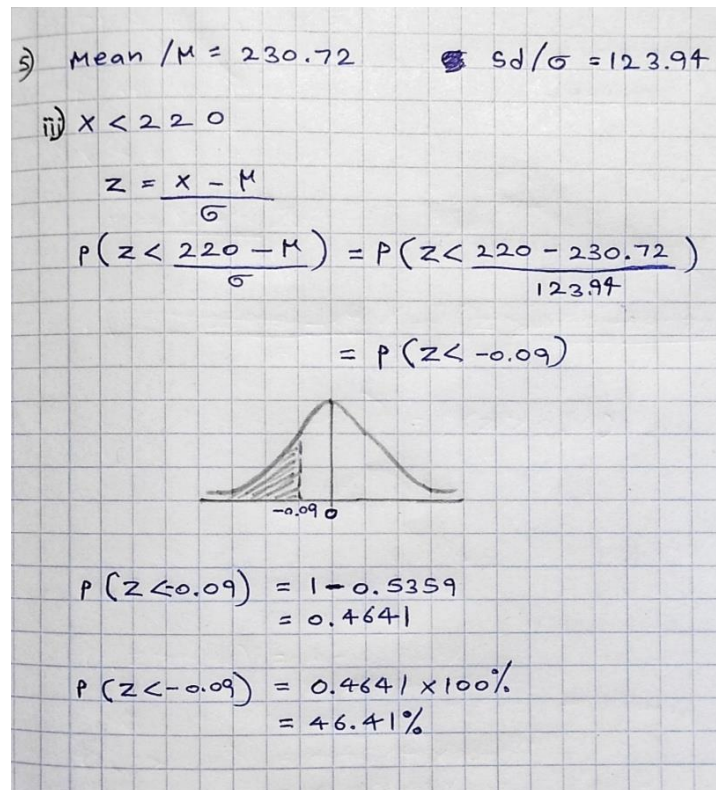 5) Mean /μ = 230.72 sd/σ = 123.94
iii) x < 220
z = x - μ
σ
P(z < 220 - μ) = P(z < 220 - 230.72)
σ 123.94
= P(z < -0.09)
-0.09 0
P(z <-0.09) = 1 - 0.5359
= 0.4641
P(z < -0.09) = 0.4641 x 100%
= 46.41%